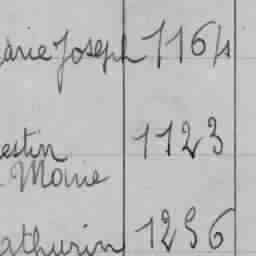 arie Joseph 1164
estin 1123
Marie
athurin 1256